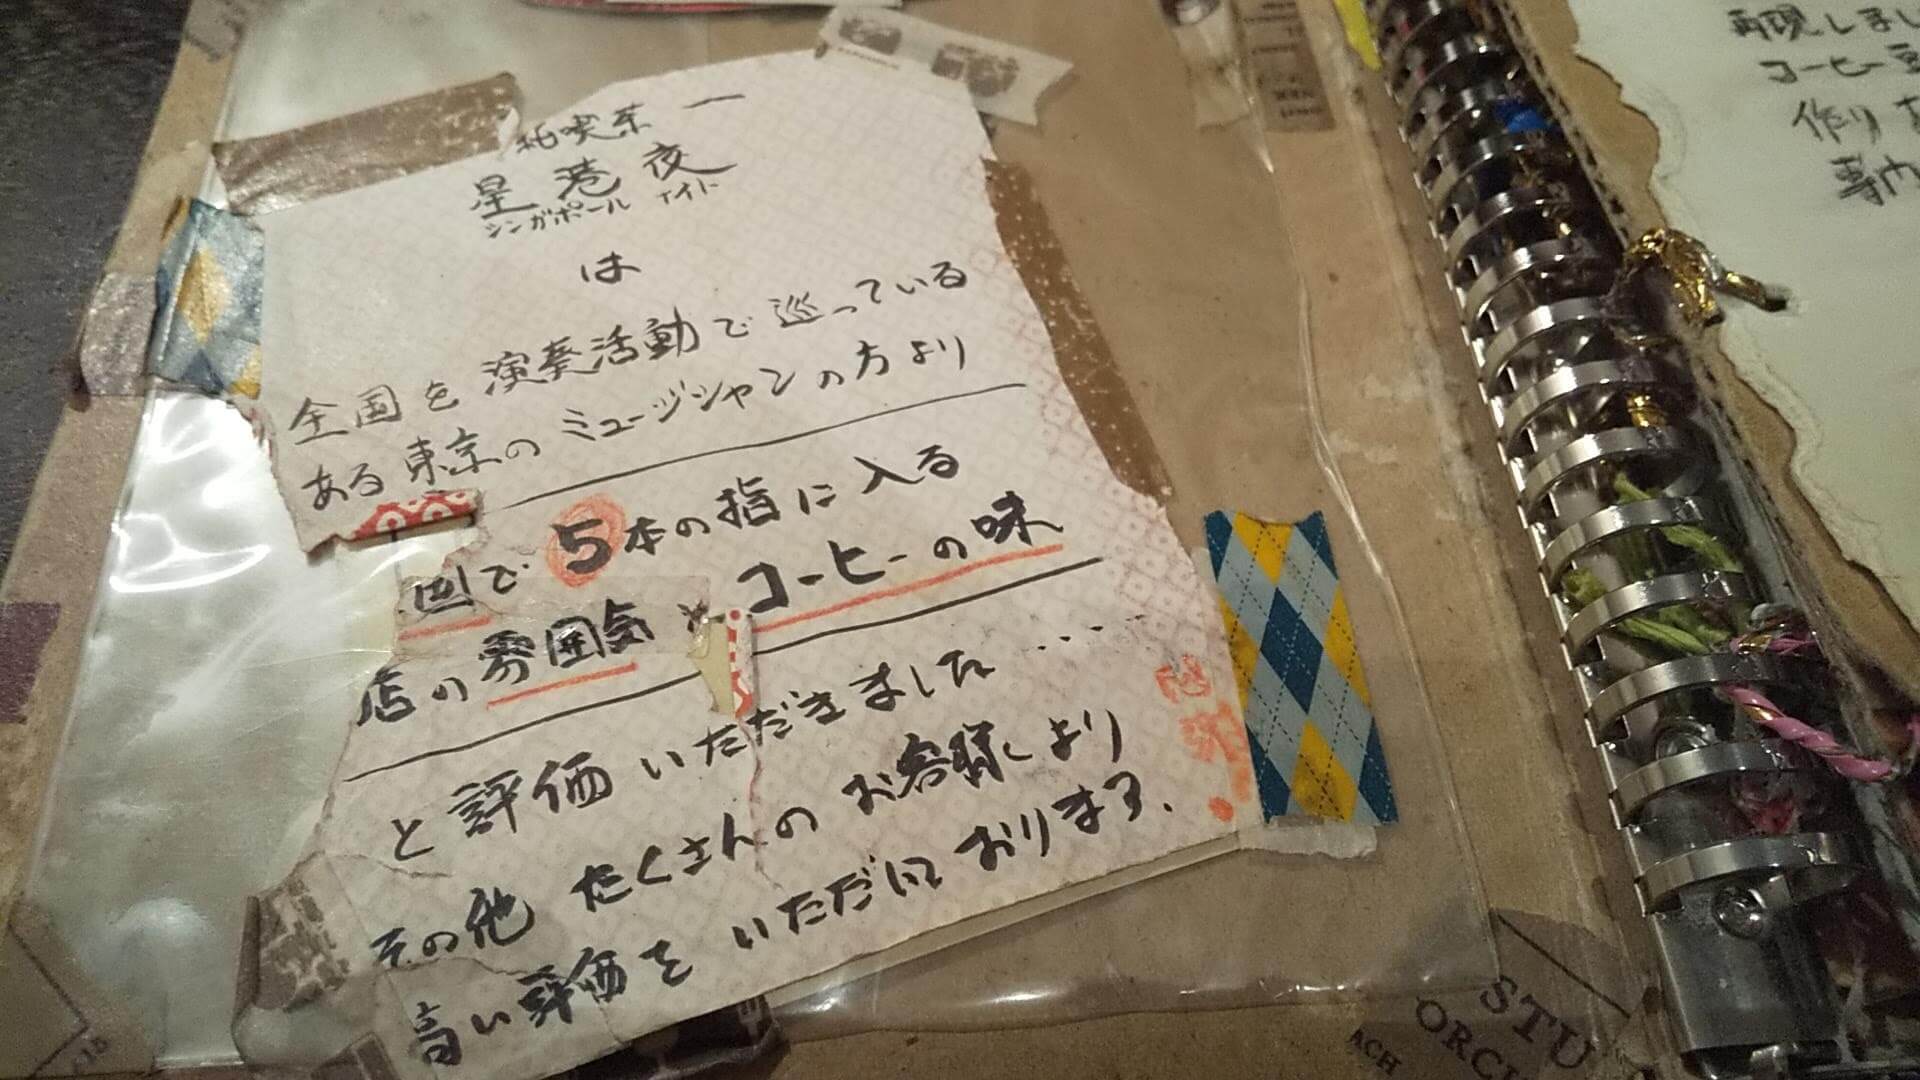 純喫茶 一
星港夜
シンガポール ナイト
は
全国を演奏活動で巡っている
ある東京のミュージシャンの方より
国で5本の指に入る
店の雰囲気 コーヒーの味
と評価いただきました・・・・
その他 たくさんの お客様より
高い評価を いただいて おります.
再現しまし
コーヒー豆
作り
専門
STU
ORCH
ACH